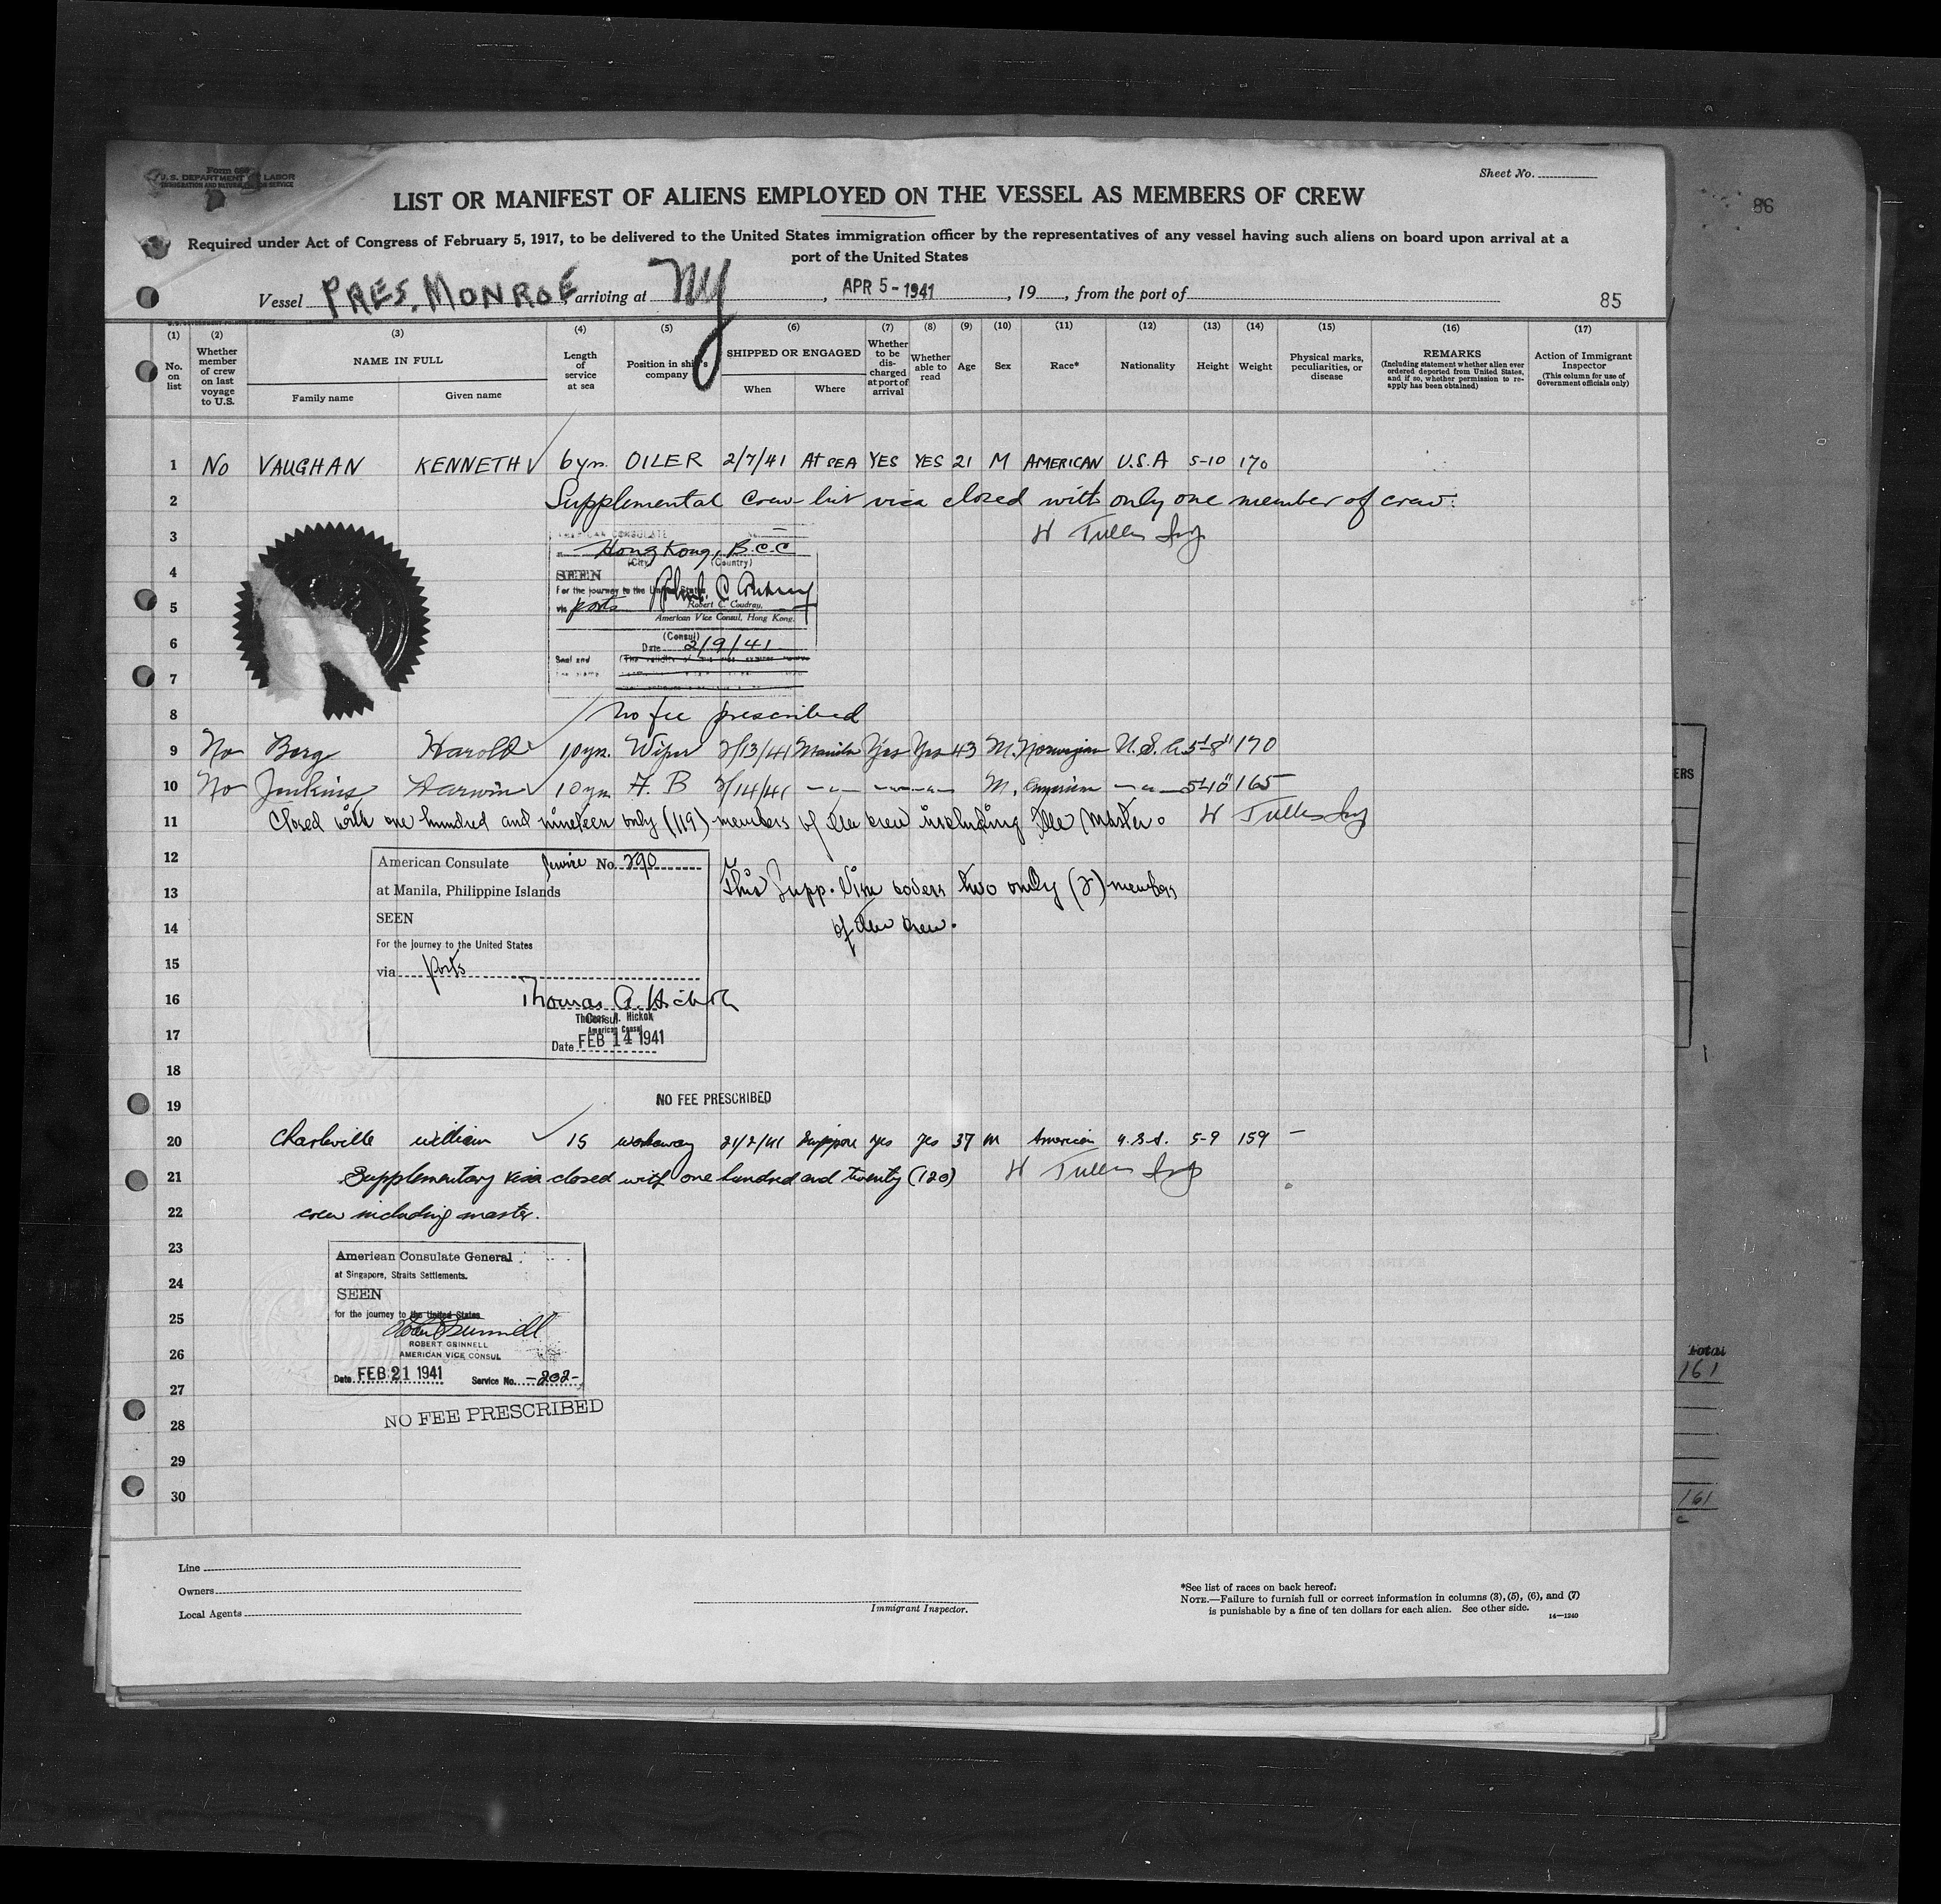 Sheet No.
U.S. DEPARTMENT LABOR
LIST OR MANIFEST OF ALIENS EMPLOYED ON THE VESSEL AS MEMBERS OF CREW
Required under Act of Congress of February 5, 1917, to be delivered to the United States immigration officer by the representatives of any vessel having such aliens on board upon arrival at a
port of the United States
86
Vessel PRES. MONROE, arriving at NY, APR 5 - 1941, 19, from the port of
85
(1) (2) (3) (4) (5) (6) (7) (8) (9) (10) (11) (12) (13) (14) (15) (16) (17)
No. on list
Whether member of crew on last voyage to U.S.
NAME IN FULL
Family name
Given name
Length of service at sea
Position in ship's company
SHIPPED OR ENGAGED
When
Where
Whether to be discharged at port of arrival
Whether able to read
Age
Sex
Race*
Nationality
Height
Weight
Physical marks, peculiarities, or disease
REMARKS
(Including statement whether alien ever ordered deported from United States, and if so, whether permission to reapply has been obtained)
Action of Immigrant Inspector
(This column for use of Government officials only)
1 NO VAUGHAN KENNETH 6 yrs. OILER 2/7/41 AT SEA YES YES 21 M AMERICAN U.S.A 5-10 170
2 Supplemental crew list visa closed with only one member of crew.
3
AMERICAN CONSULATE
Hong Kong, B.C.C
(City) (Country)
4
SEEN
For the journey to the United States
5
via ports
Robert C. Coudray,
American Vice Consul, Hong Kong.
6
(Consul)
Date 2/9/41
Seal and
7
8 No fee prescribed
9 No Berg Harold 10 yrs. Wiper 2/13/41 Manila Yes Yes 43 M. Norwegian U.S.A. 5'-8" 170
10 No Jenkins Darwin 10 yrs A.B 2/14/41 M. American 5'-10" 165
11 Closed with one hundred and nineteen only (119) members of the crew including the Master.
12
American Consulate Service No. 290
at Manila, Philippine Islands
13
This Supp. Visa covers two only (2) members
SEEN
14
of the crew.
For the journey to the United States
15
via ports
16
Thomas A. Hickok
Thomas A. Hickok
Consul
American Consul
17
Date FEB 14 1941
18
19 NO FEE PRESCRIBED
20 Charleville William 15 workaway 21/2/41 Singapore yes yes 37 M American U.S.A. 5-9 159 -
21 Supplementary visa closed with one hundred and twenty (120)
22 crew including master.
23
American Consulate General
at Singapore, Straits Settlements.
24
SEEN
25
for the journey to the United States
ROBERT GRINNELL
26
AMERICAN VICE CONSUL
Date FEB 21 1941 Service No. -202-
27
28 NO FEE PRESCRIBED
29
30
Total
161
161
Line
Owners
Local Agents
Immigrant Inspector.
*See list of races on back hereof.
NOTE.—Failure to furnish full or correct information in columns (3), (5), (6), and (7)
is punishable by a fine of ten dollars for each alien. See other side.
14—1240